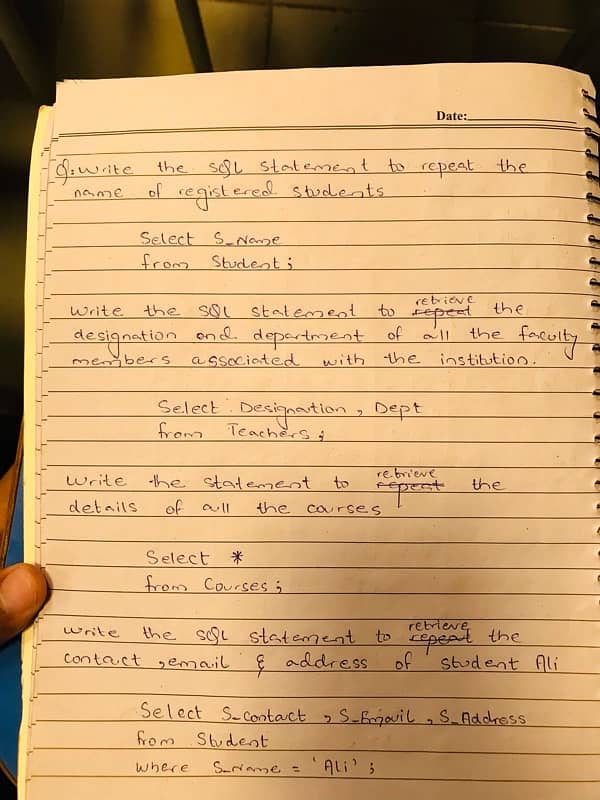 Date:
Q: Write the SQL Statement to repeat the
name of registered students
Select S_Name
from Student;
Write the SQL statement to repeat retrieve the
designation and department of all the faculty
members associated with the institution.
Select Designation, Dept
from Teachers;
Write the statement to repeat retrieve the
details of all the courses
Select *
from Courses;
Write the SQL statement to repeat retrieve the
contact, email & address of student Ali
Select S_contact, S_Email, S_Address
from Student
where S_Name = 'Ali';